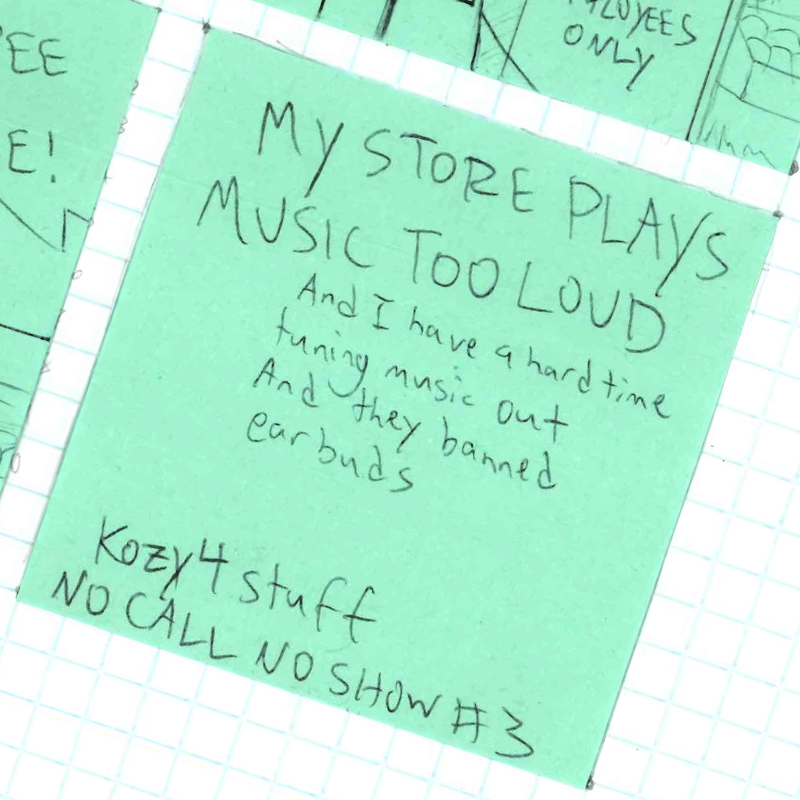 EE
E!
LOYEES
ONLY
MY STORE PLAYS
MUSIC TOO LOUD
And I have a hard time
tuning music out
And they banned
earbuds
Kozy4stuff
NO CALL NO SHOW #3